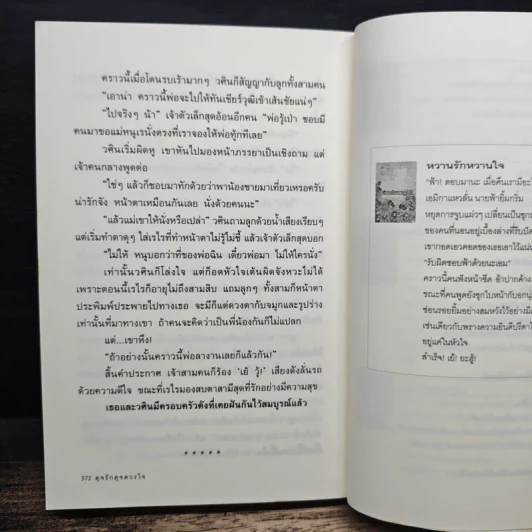 คราวนี้เมื่อโดนรบเร้ามากๆ วศินก็สัญญากับลูกทั้งสามคน
"เอาน่า คราวนี้พ่อจะไปให้ทันเชียร์วุฒิเข้าเส้นชัยแน่ๆ"
"ไปจริงๆ น้า" เจ้าตัวเล็กสุดอ้อนอีกคน "พ่อรู้เปล่า ชอบมี
คนมาขอแม่หนูเรนั่งตรงที่เราจองให้พ่อทู้กทีเลย"
วศินเริ่มผิดหู เขาหันไปมองหน้าภรรยาเป็นเชิงถาม แต่
เจ้าคนกลางพูดต่อ
"ใช่ๆ แล้วก็ชอบมาทักด้วยว่าพาน้องชายมาเที่ยวเหรอครับ
น่ารักจัง หน้าตาเหมือนกันเลย นั่งด้วยคนนะ"
"แล้วแม่เขาให้นั่งหรือเปล่า" วศินถามลูกด้วยน้ำเสียงเรียบๆ
แต่เริ่มทำตาดุๆ ใส่เรไรที่ทำหน้าตาไม่รู้ไม่ชี้ แล้วเจ้าตัวเล็กสุดบอก
"ไม่ให้ หนูบอกว่าที่ของพ่อฉิน เดี๋ยวพ่อมา ไม่ให้ใครนั่ง"
เท่านั้นวศินก็โล่งใจ แต่ก็อดหัวใจเต้นผิดจังหวะไม่ได้
เพราะตอนนี้เรไรก็อายุไม่ถึงสามสิบ แถมลูกๆ ทั้งสามก็หน้าตา
ประพิมพ์ประพายไปทางเธอ จะมีก็แต่ดวงตากับจมูกและรูปร่าง
เท่านั้นที่มาทางเขา ถ้าคนจะคิดว่าเป็นพี่น้องกันก็ไม่แปลก
แต่...เขาหึง!
"ถ้าอย่างนั้นคราวนี้พ่อลางานเลยก็แล้วกัน!"
สิ้นคำประกาศ เจ้าสามคนก็ร้อง 'เย้ วู้!' เสียงดังลั่นรถ
ด้วยความดีใจ ขณะที่เรไรมองสบตาสามีสุดที่รักอย่างมีความสุข
เธอและวศินมีครอบครัวดังที่เคยฝันกันไว้สมบูรณ์แล้ว
*****
372 ดุจรักดุจดวงใจ
หวานรักหวานใจ
"ฟ้า! ตอบมานะ เมื่อคืนเรามีอะไ
เอมิกาแหวลั่น นายฟ้ายิ้มกริ่ม
หยุดการจูบแผ่วๆ เปลี่ยนเป็นซุก
ของคนที่นอนอยู่เบื้องล่างที่รีบปัด
เขากอดเอวคอดของเธอเอาไว้แน่น
"รับผิดชอบฟ้าด้วยนะเอม"
คราวนี้คนฟังหน้าซีด อ้าปากค้าง
ขณะที่คนพูดยังซุกใบหน้ากับอกนุ่ม
ซ่อนรอยยิ้มอย่างสมหวังไว้อย่างมิด
เช่นเดียวกับพรางความยินดีปรีดาไ
อยู่แค่ในหัวใจ
สำเร็จ! เย้! ยะฮู้!